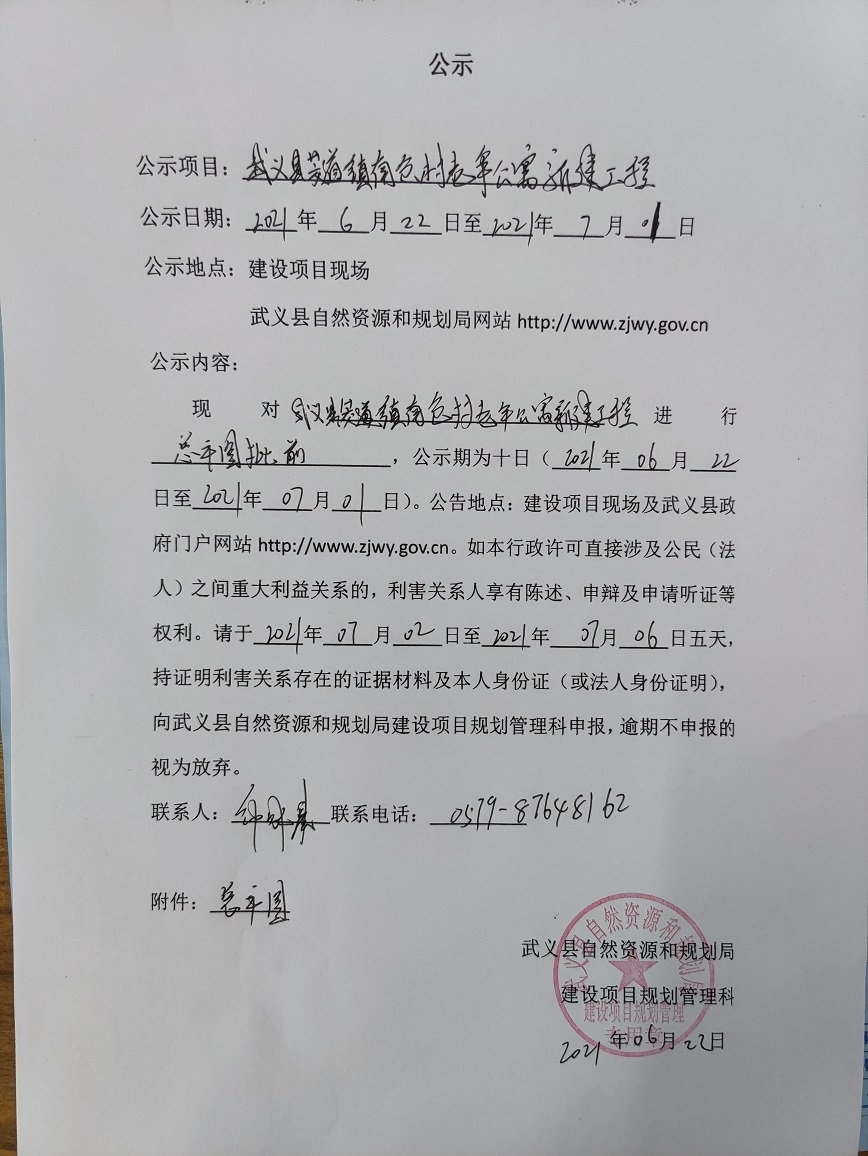 公示
公示项目：武义县茭道镇村老年公寓新建工程
公示日期：2021年6月22日至2021年7月01日
公示地点：建设项目现场
武义县自然资源和规划局网站 http://www.zjwy.gov.cn
公示内容：
现对武义县茭道镇村老年公寓新建工程进行
总平图批前，公示期为十日（2021年06月22
日至2021年07月01日）。公告地点：建设项目现场及武义县政
府门户网站 http://www.zjwy.gov.cn。如本行政许可直接涉及公民（法
人）之间重大利益关系的，利害关系人享有陈述、申辩及申请听证等
权利。请于2021年07月02日至2021年07月06日五天，
持证明利害关系存在的证据材料及本人身份证（或法人身份证明），
向武义县自然资源和规划局建设项目规划管理科申报，逾期不申报的
视为放弃。
联系人： 联系电话：0579-87648162
附件：总平图
武义县自然资源和规划局
建设项目规划管理科
2021年06月22日
武义县自然资源和规划局
建设项目规划管理
专用章